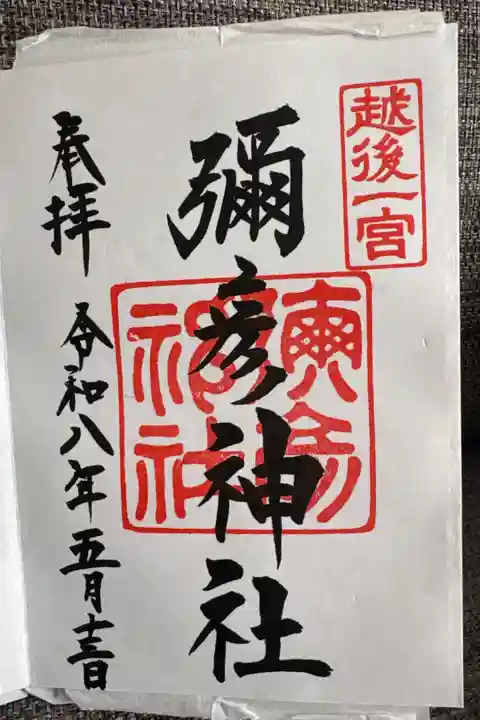 越後一宮
彌彦神社
奉拝
令和八年五月十三日